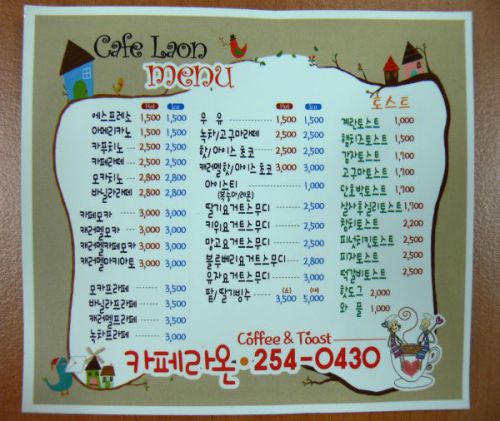 Cafe Laon
menu
Hot Ice
에스프레소 1,500 1,500
아메리카노 1,500 1,500
카푸치노 2,500 2,500
카페라떼 2,500 2,500
모카치노 2,800 2,800
바닐라라떼 2,800 2,800
카페모카 3,000 3,000
캬라멜모카 3,000 3,000
캬라멜카페모카 3,000 3,000
캬라멜마키아토 3,000 3,000
모카프라페 3,500
바닐라프라페 3,500
캬라멜프라페 3,500
녹차프라페 3,500
Hot Ice
우 유 1,500 1,500
녹차/고구마라떼 2,500 2,500
핫/아이스 초코 2,500 2,500
캬라멜핫/아이스 초코 3,000 3,000
아이스티 1,000
(복숭아/레몬)
딸기요거트스무디 2,500
키위요거트스무디 2,500
망고요거트스무디 2,500
블루베리요거트스무디 2,800
유자요거트스무디 3,000
(소) (대)
팥/딸기빙수 3,500 5,000
토스트
계란토스트 1,000
햄치즈토스트 1,700
감자토스트
고구마토스트
단호박토스트
샐사후실리토스트
참치토스트 2,200
피넛치킨토스트 2,500
피자토스트 2,500
떡갈비토스트 2,500
핫도그 2,000
와 플 1,000
Coffee & Toast
카페라온·254-0430